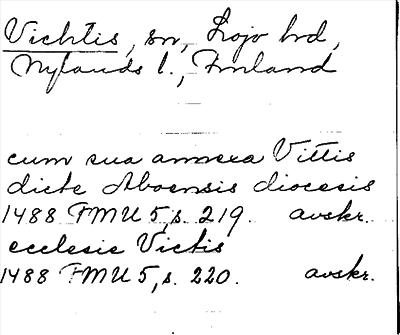 Vichtis, sn, Lojo hd,
Nylands l., Finland
cum sua annexa Vittis
dicte Aboensis diocesis
1488 FMU 5, s. 219. avskr.
ecclesie Victis
1488 FMU 5, s. 220. avskr.